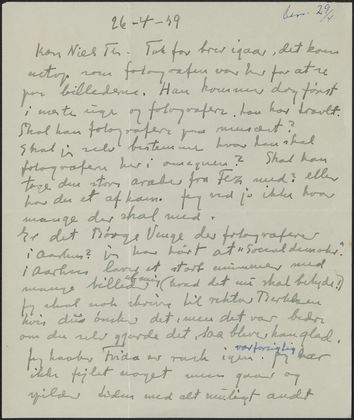 26-4-49
besv. 29/4
Kære Niels Th. Tak for brev igaar, det kom
netop som fotografen var her for at se
paa billederne. Han kommer dog først
i næste uge og fotograferer, han har travlt.
Skal han fotografere paa museet?
Skal jeg selv bestemme hvor han skal
fotografere her i omegnen? Skal han
tage den store araber fra Fez med? eller
har du et af ham. Jeg ved jo ikke hvor
mange der skal med.
Er det Børge Venge der fotograferer
i Aarhus? jeg har hørt at "Socialdemokr.
i Aarhus lavet et stort nummer med
mange billeder (hvad det nu skal betyde?)
Jeg skal nok skrive til rektor
hvis du ønsker det, men det var bedre
om du selv gjorde det, saa bliver han glad.
Jeg haaber Frida er rask igen. forsigtig Jeg har
ikke fejlet noget men gaar og
spilder tiden med alt muligt andet